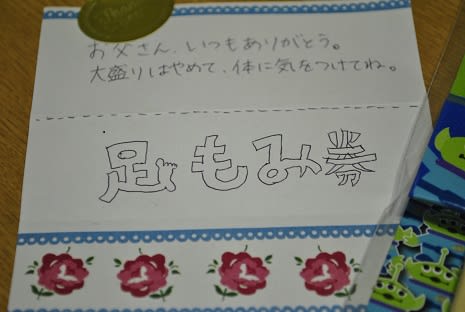 お父さん、いつもありがとう。
大盛りはやめて、体に気をつけてね。
足もみ券